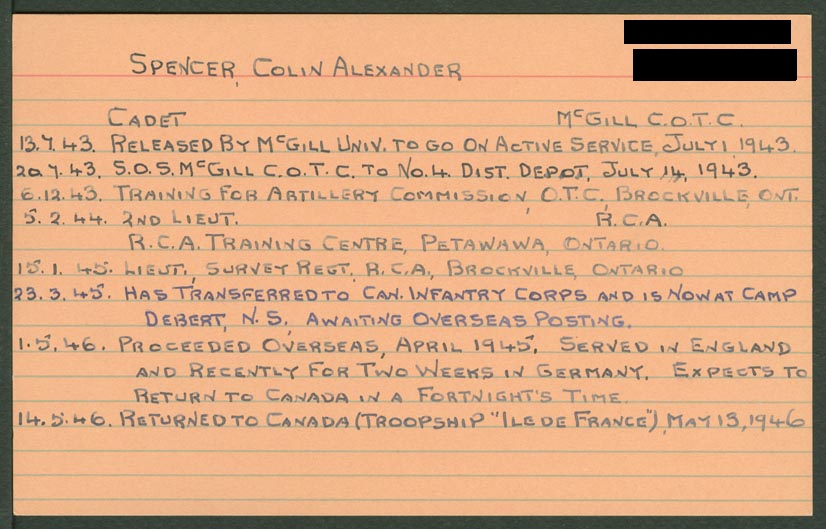 SPENCER, COLIN ALEXANDER
CADET McGILL C.O.T.C.
13.7.43. RELEASED BY McGILL UNIV. TO GO ON ACTIVE SERVICE, JULY 1, 1943.
20.7.43. S.O.S. McGILL C.O.T.C. TO No.4. DIST. DEPOT, JULY 14, 1943.
6.12.43. TRAINING FOR ARTILLERY COMMISSION, O.T.C., BROCKVILLE, ONT.
5.2.44. 2ND LIEUT. R.C.A.
R.C.A. TRAINING CENTRE, PETAWAWA, ONTARIO.
15.1.45. LIEUT., SURVEY REGT. R.C.A., BROCKVILLE, ONTARIO
23.3.45. HAS TRANSFERRED TO CAN. INFANTRY CORPS AND IS NOW AT CAMP
DEBERT, N.S., AWAITING OVERSEAS POSTING.
1.5.46. PROCEEDED OVERSEAS, APRIL 1945. SERVED IN ENGLAND
AND RECENTLY FOR TWO WEEKS IN GERMANY. EXPECTS TO
RETURN TO CANADA IN A FORTNIGHT'S TIME.
14.5.46. RETURNED TO CANADA (TROOPSHIP "ILE DE FRANCE"), MAY 13, 1946